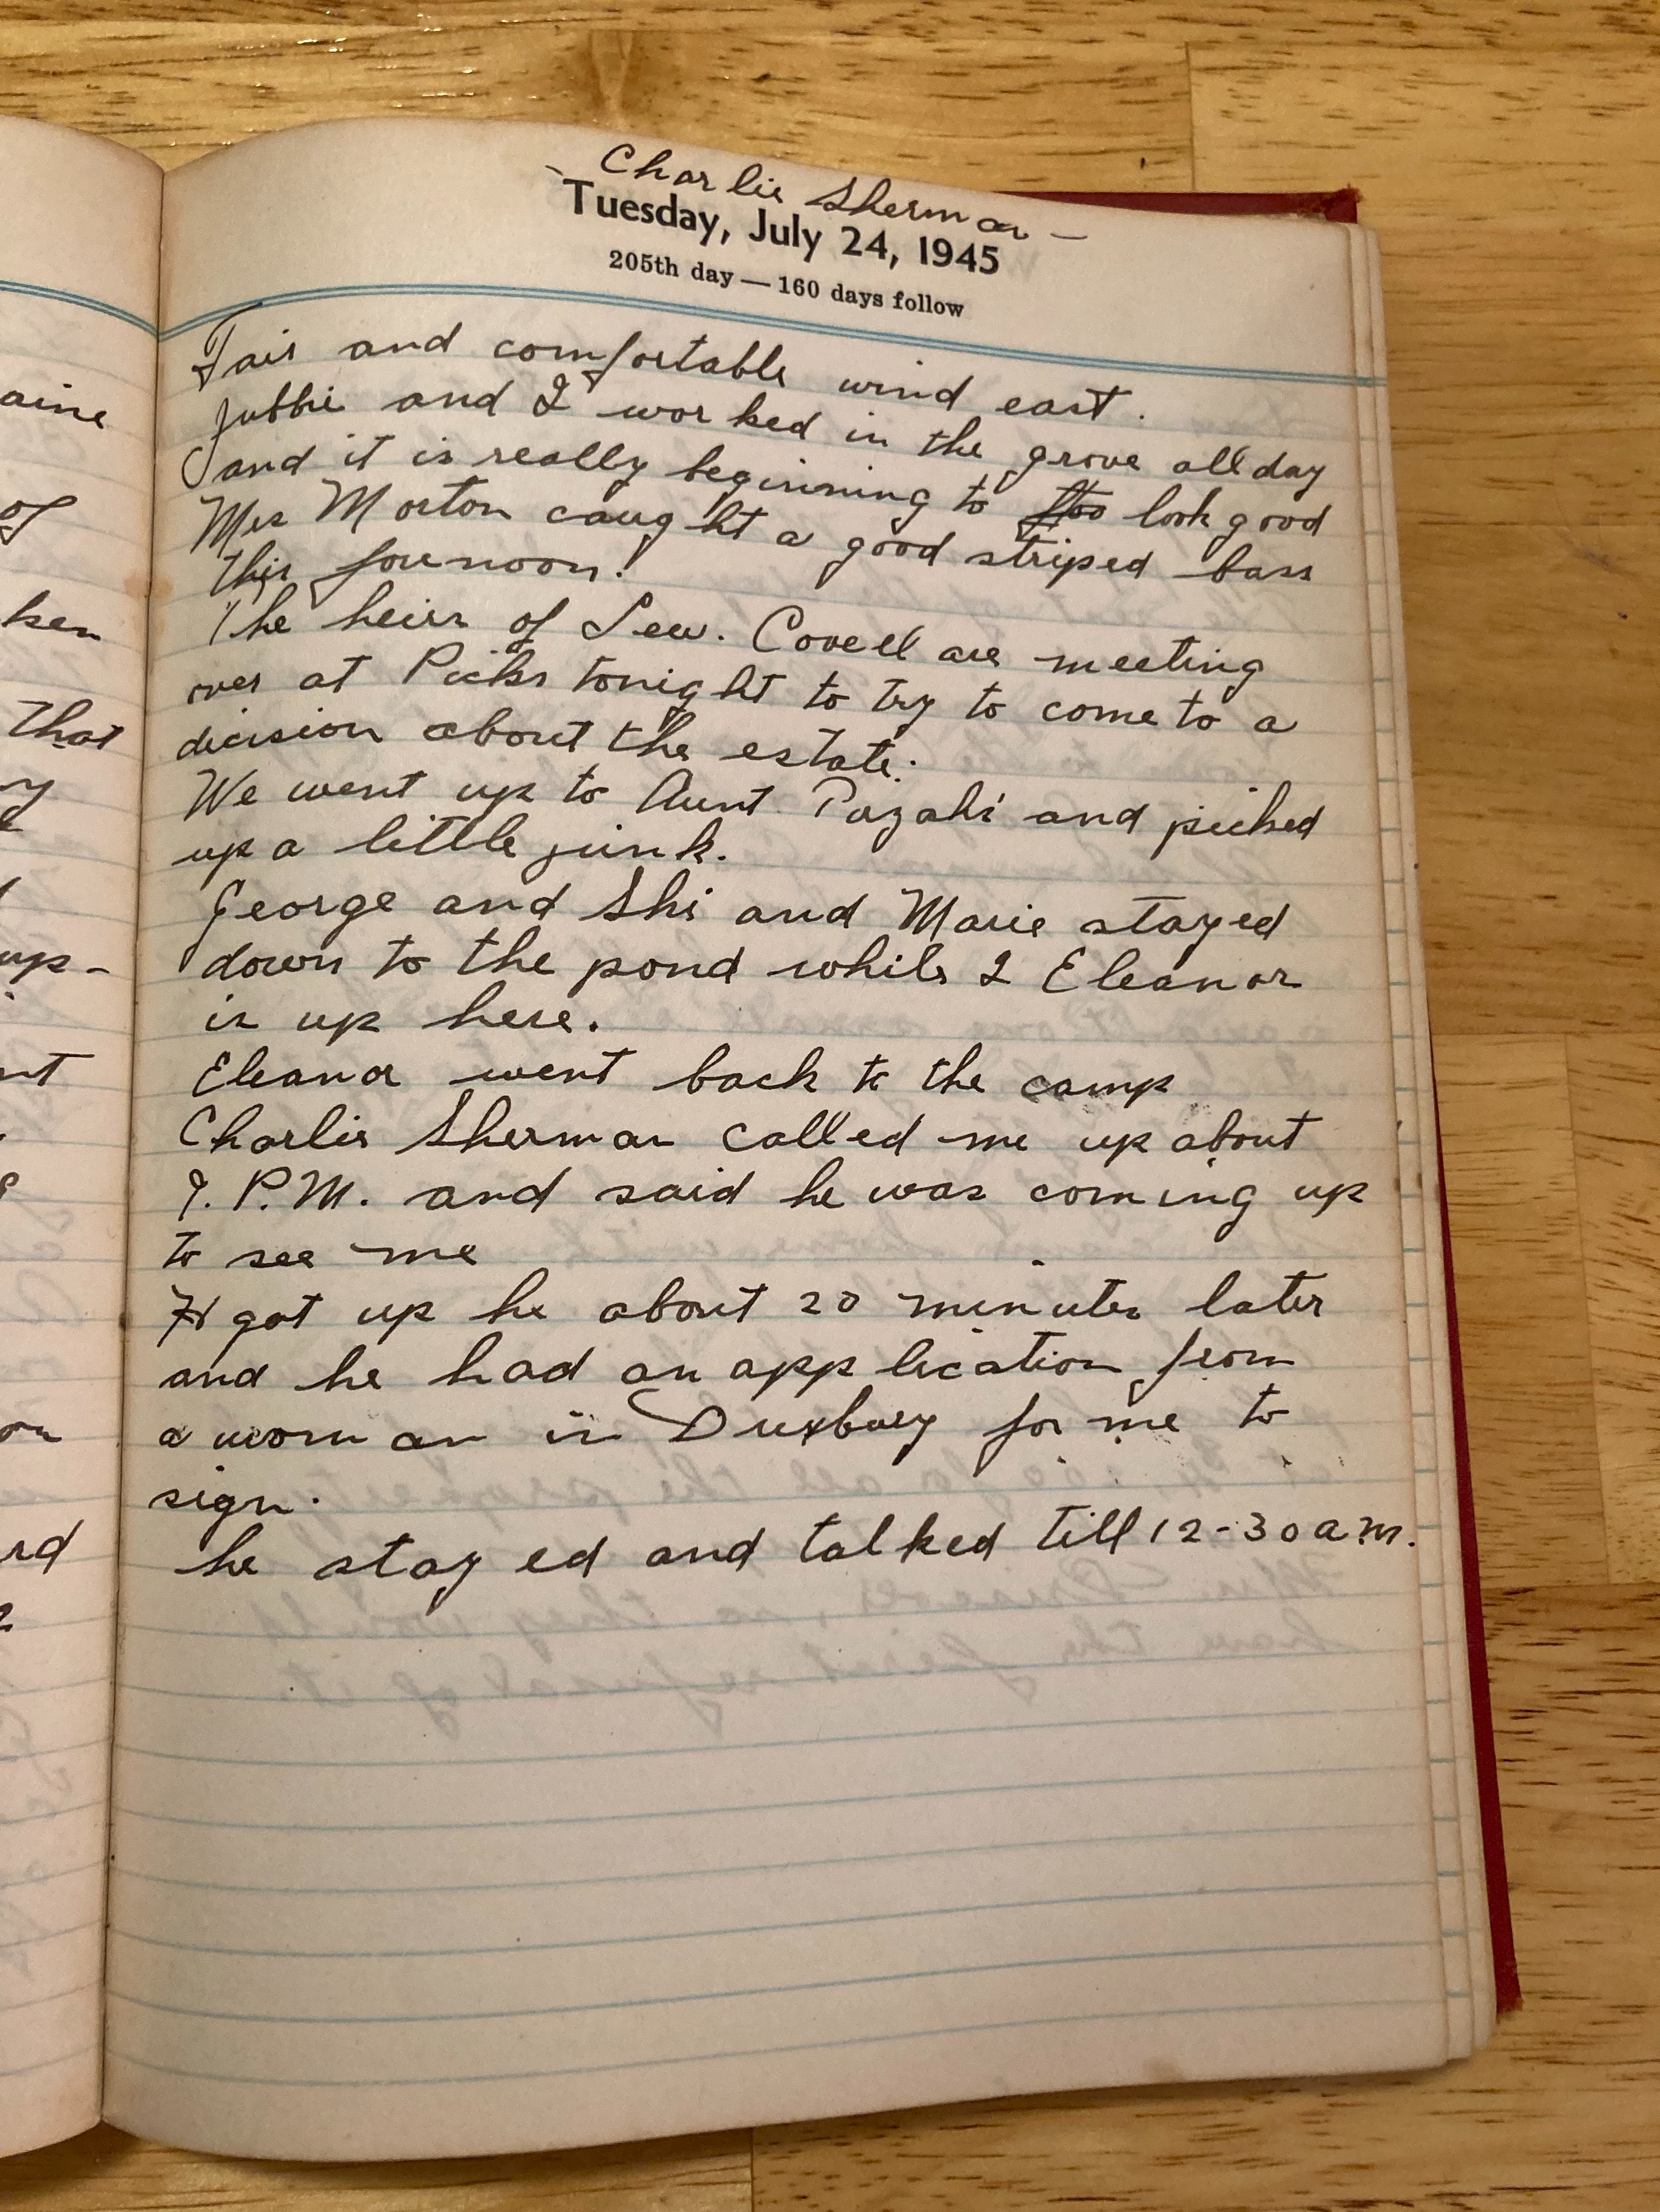 aine
of
ken
that
up-
nt
on
rd
- Charlie Sherman -
Tuesday, July 24, 1945
205th day — 160 days follow
Fair and comfortable wind east.
Jubbie and I worked in the grove all day
and it is really beginning to too look good
Mrs Morton caught a good striped bass
this forenoon!
The heirs of Lew. Covell are meeting
over at Picks tonight to try to come to a
decision about the estate.
We went up to Aunt and picked
up a little junk.
George and Shi and Marie stayed
down to the pond while I Eleanor
is up here.
Eleanor went back to the camp
Charlie Sherman called me up about
P.M. and said he was coming up
to see me
got up he about 20 minutes later
and he had an application from
a woman in Duxbury for me to
sign.
he stayed and talked till 12-30 a.m.